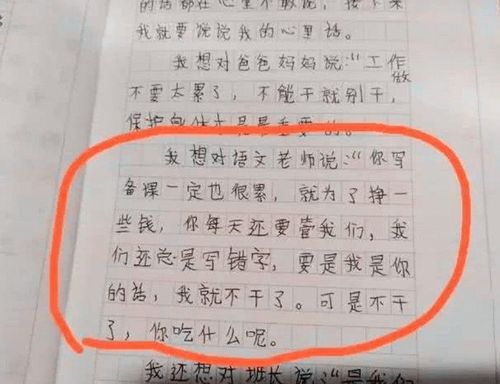 的话都在心里不敢说，接下来
我就要说说我的心里话。
我想对爸爸妈妈说:“工作
做
不要太累了，不能干就别干，
保护身体才是最重要的。
我想对语文老师说:“你写
备课一定也很累，就为了挣一
些钱，你每天还要管我们，我
们还总是写错字，要是我是你
的话，我就不干了。可是不干
了，你吃什么呢。
我还想对班长说:“是我们